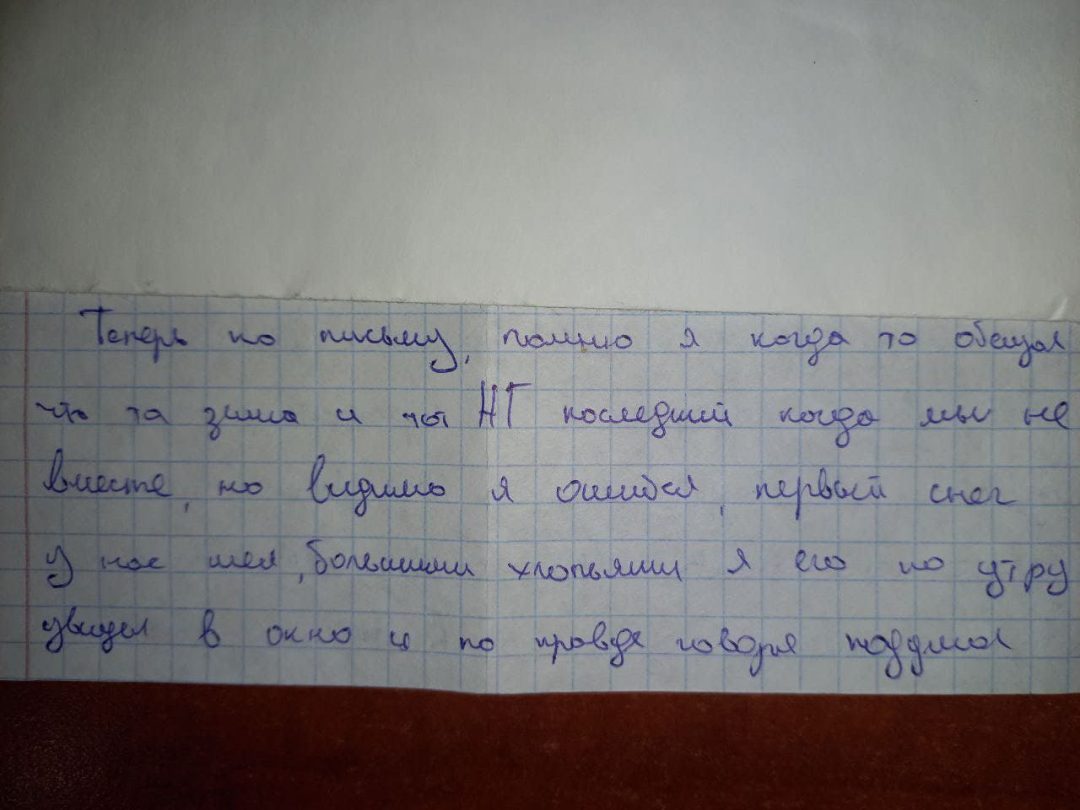 Теперь по письму, помню я когда то обещал
что та зима и тот НГ последний когда мы не
вместе, но видимо я ошибся, первый снег
у нас шел, большими хлопьями я его по утру
увидел в окно и по правде говоря подумал